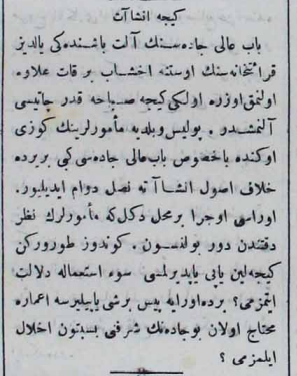 كیجه انشاآت
باب عالی جاده‌سنك آلت باشنده‌كی یالدیز
قرائتخانه‌سنك اوستنه اخشاب بر قات علاوه
اولنمق اوزره اولكی كیجه صباحه قدر چاتیسی
آلنمشدر . پولیس وبلدیه مأمورلرینك كوزی
اوكنده باخصوص باب عالی جاده‌سی كبی بریرده
خلاف اصول انشاآته نصل دوام ایدیلیور.
اوراسی اوجرا برمحل دكل كه مأمورلرك نظر
دقتندن دور بولنسون . كوندوز طورورکن
كیجه‌لین یاپی یاپدیرلمسی سوء استعماله دلالت
ایتمزمی؟ برده اورایه پیس برشی یاپیلیرسه اعماره
محتاج اولان بوجاده‌نك شرفی بسبتون اخلال
ایلمزمی ؟